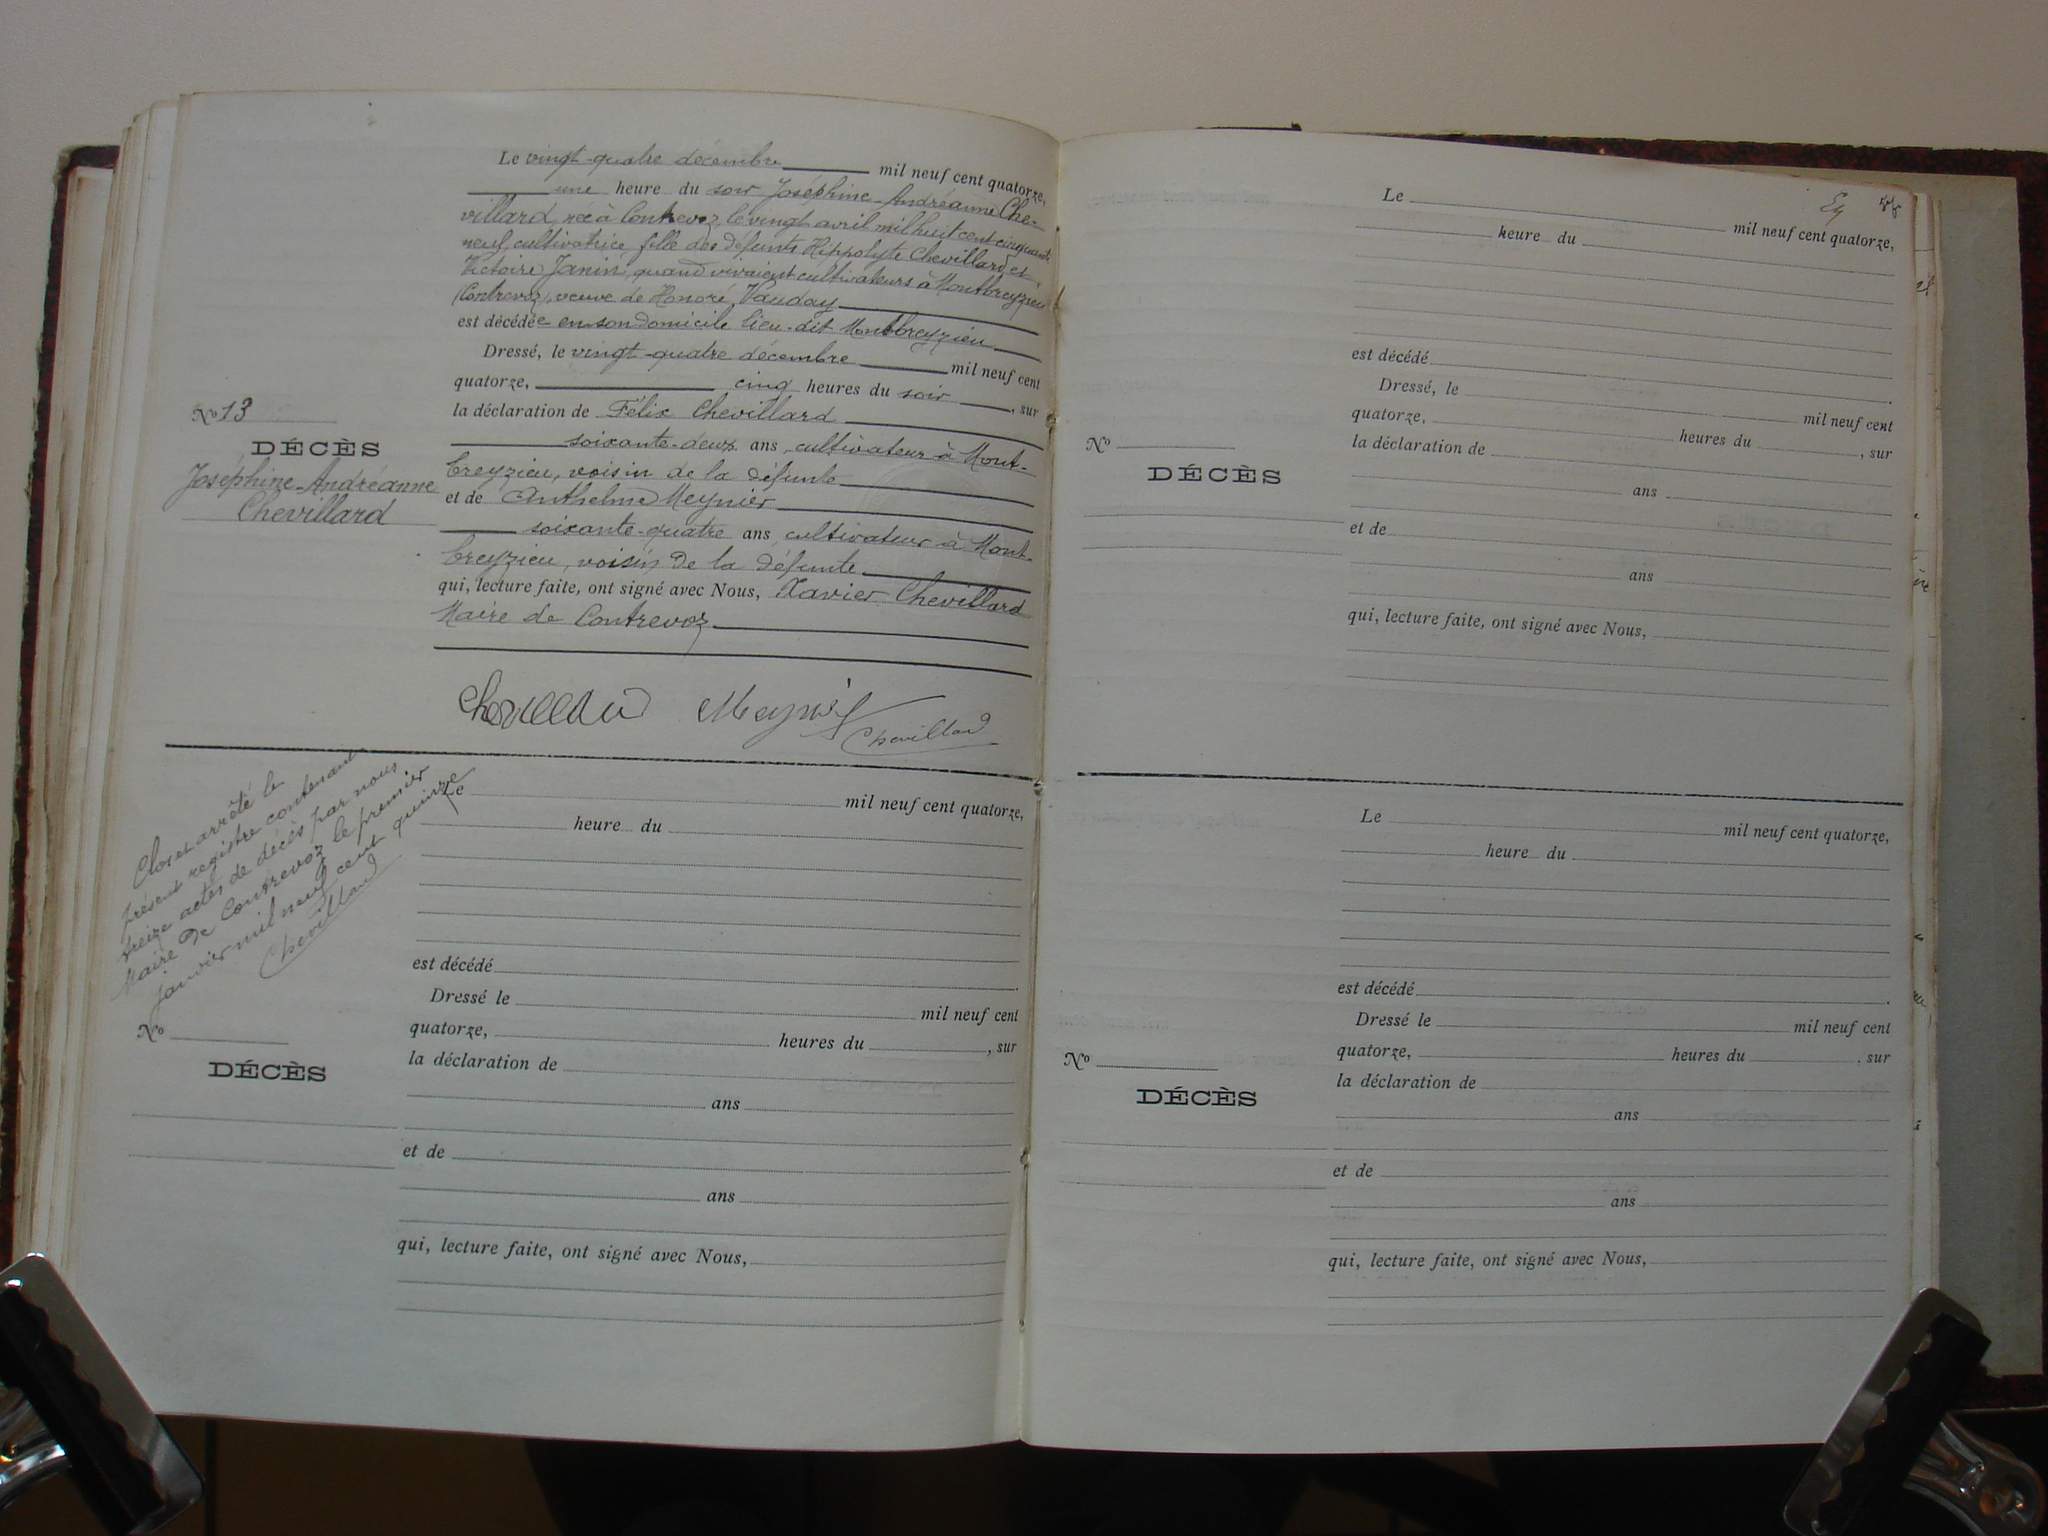 Le vingt-quatre décembre mil neuf cent quatorze,
une heure du soir Joséphine-Andréanne Che-
villard, née à Contrevoz, le vingt avril mil huit cent cinquante
neuf, cultivatrice fille des défunts Hippolyte Chevillard et
Victoire Janin, quand vivaient cultivateurs à Montbreyzieu
(Contrevoz), veuve de Honoré Vauday
est décédée en son domicile lieu-dit Montbreyzieu
Dressé, le vingt-quatre décembre mil neuf cent
quatorze, cinq heures du soir, sur
la déclaration de Félix Chevillard
soixante-deux ans, cultivateur à Mont-
breyzieu, voisin de la défunte
et de Anthelme Meynier
soixante-quatre ans, cultivateur à Mont-
breyzieu, voisin de la défunte
qui, lecture faite, ont signé avec Nous, Xavier Chevillard
Maire de Contrevoz
Chevillard Meynier
Chevillard
No 13
DÉCÈS
Joséphine-Andréanne
Chevillard
Clos et arrêté le
présent registre contenant
treize actes de décès par nous
Maire de Contrevoz le premier
janvier mil neuf cent quinze
Chevillard
No
DÉCÈS
Le mil neuf cent quatorze,
heure du
est décédé
Dressé le mil neuf cent
quatorze, heures du , sur
la déclaration de
ans
et de
ans
qui, lecture faite, ont signé avec Nous,
Le mil neuf cent quatorze,
heure du
est décédé
Dressé, le mil neuf cent
quatorze, heures du , sur
la déclaration de
ans
et de
ans
qui, lecture faite, ont signé avec Nous,
No
DÉCÈS
Le mil neuf cent quatorze,
heure du
est décédé
Dressé le mil neuf cent
quatorze, heures du , sur
la déclaration de
ans
et de
ans
qui, lecture faite, ont signé avec Nous,
No
DÉCÈS